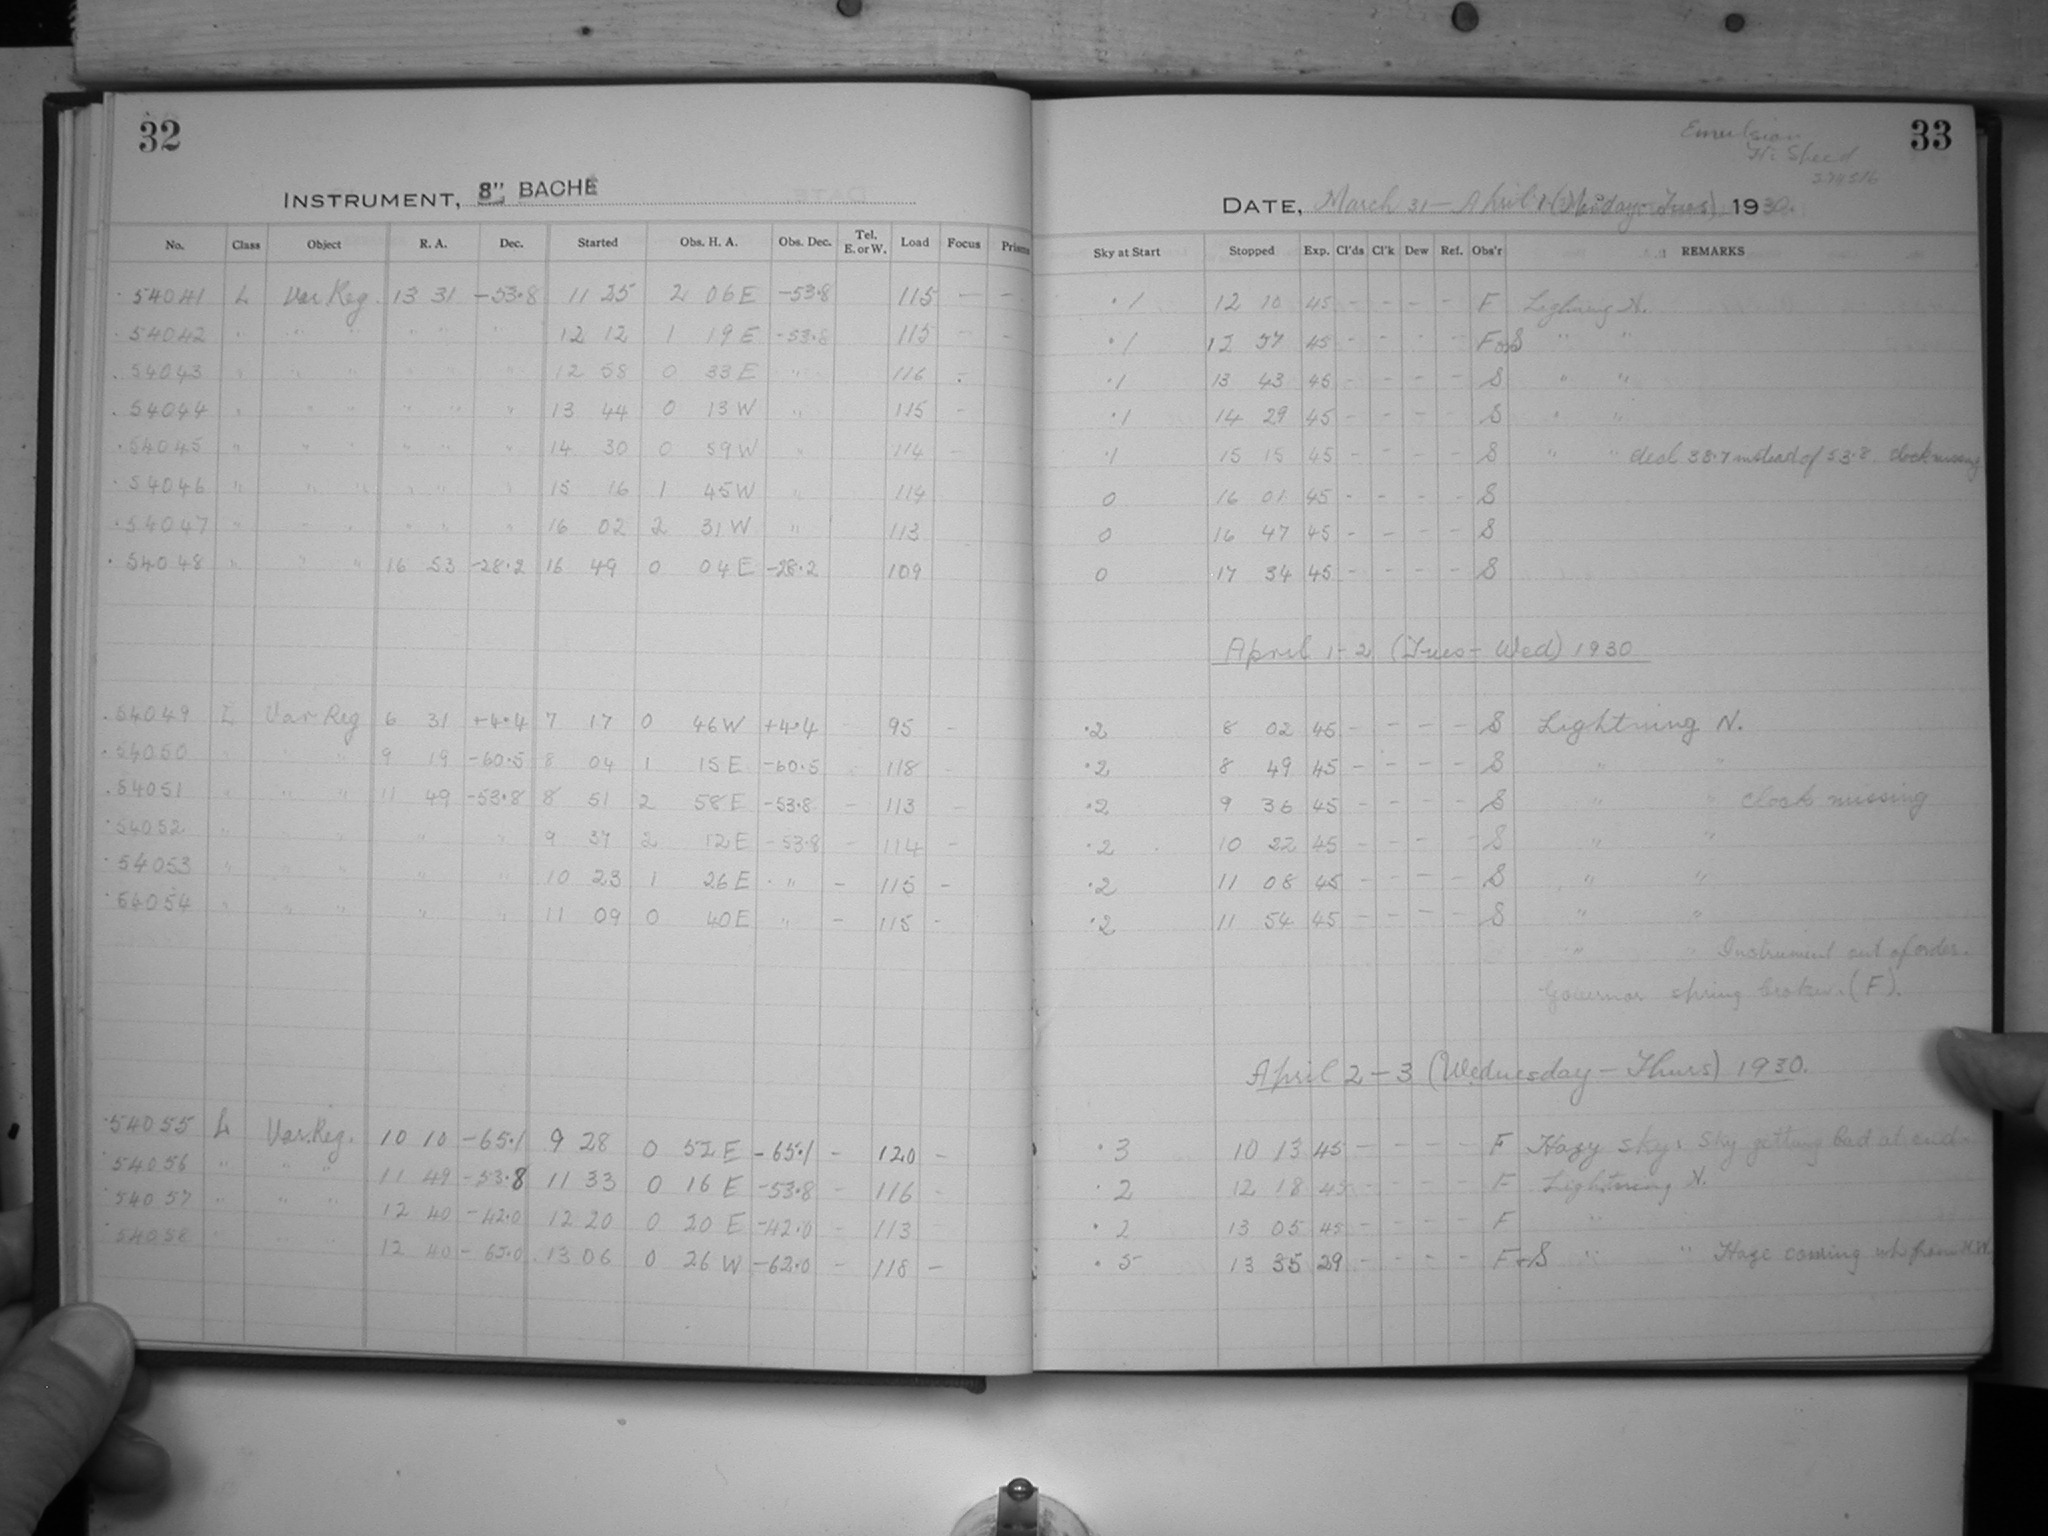 32
INSTRUMENT, 8" BACHE
No. Class Object R. A. Dec. Started Obs. H. A. Obs. Dec. Tel. E. or W. Load Focus Prisms
54041 L Var Reg. 13 31 -53.8 11 25 2 06 E -53.8 115 — —
54042 " " " " " " 12 12 1 19 E -53.8 115 — —
54043 " " " " " " 12 58 0 33 E " 116 -
54044 " " " " " " 13 44 0 13 W " 115 -
54045 " " " " " " 14 30 0 59 W " 114 —
54046 " " " " " " 15 16 1 45 W " 114
54047 " " " " " " 16 02 2 31 W " 113
54048 " " " 16 53 -28.2 16 49 0 04 E -28.2 109
54049 L Var Reg 6 31 +4.4 7 17 0 46 W +4.4 - 95 -
54050 " " " 9 19 -60.5 8 04 1 15 E -60.5 118 -
54051 " " " 11 49 -53.8 8 51 2 58 E -53.8 - 113 -
54052 " " " " " 9 37 2 12 E -53.8 - 114 -
54053 " " " " " 10 23 1 26 E " - 115 -
54054 " " " " " 11 09 0 40 E " - 115 -
54055 L Var. Reg. 10 10 -65.1 9 28 0 52 E -65.1 - 120 -
54056 " " " 11 49 -53.8 11 33 0 16 E -53.8 - 116 -
54057 " " " 12 40 -42.0 12 20 0 20 E -42.0 - 113 -
54058 " " " 12 40 13 06 0 26 W -62.0 - 118 -
33
Emulsion
Hi Speed
DATE, March 31 - April 1 (Monday-Tues) 1930.
Sky at Start Stopped Exp. Cl'ds Cl'k Dew Ref. Obs'r REMARKS
.1 12 10 45 - - - - F Lightning N.
.1 57 45 - - - - F & S " "
.1 13 43 45 - - - - S " "
.1 14 29 45 - - - - S " "
.1 15 15 45 - - - - S " " decl 38.7 instead of 53.8 clock missing
0 16 01 45 - - - - S
0 16 47 45 - - - - S
0 17 34 45 - - - - S
April 1-2 (Tues - Wed) 1930
.2 8 02 45 - - - - S Lightning N.
.2 8 49 45 - - - - S " "
.2 9 36 45 - - - - S " " clock missing
.2 10 22 45 - - - - S " "
.2 11 08 45 - - - - S " "
.2 11 54 45 - - - - S " "
" " Instrument out of order.
Governor spring broken. (F).
April 2-3 (Wednesday - Thurs) 1930.
.3 10 13 45 - - - - F Hazy sky. Sky getting bad at end.
.2 12 18 45 - - - - F Lightning N.
.2 13 05 45 - - - - F "
.5 13 35 29 - - - - F & S " " Haze coming up from N.W.